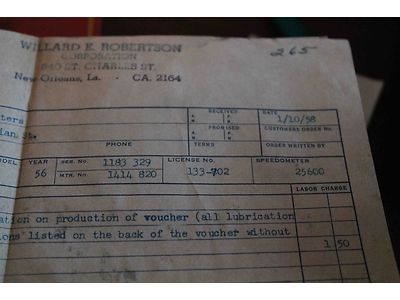 WILLARD E. ROBERTSON
CORPORATION
840 ST. CHARLES ST.
New Orleans, La. - CA. 2164
265
RECEIVED
A.M. P.M.
DATE
1/10/58
PROMISED
A.M. P.M.
CUSTOMERS ORDER No.
PHONE
TERMS
ORDER WRITTEN BY
YEAR
56
SER. No. 1183 329
MTR. No. 1414 820
LICENSE No.
133-702
SPEEDOMETER
25600
LABOR CHARGE
on production of voucher (all lubrication
listed on the back of the voucher without
1 50